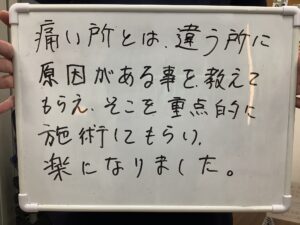 痛い所とは、違う所に
原因がある事を、教えて
もらえ、そこを重点的に
施術してもらい、
楽になりました。